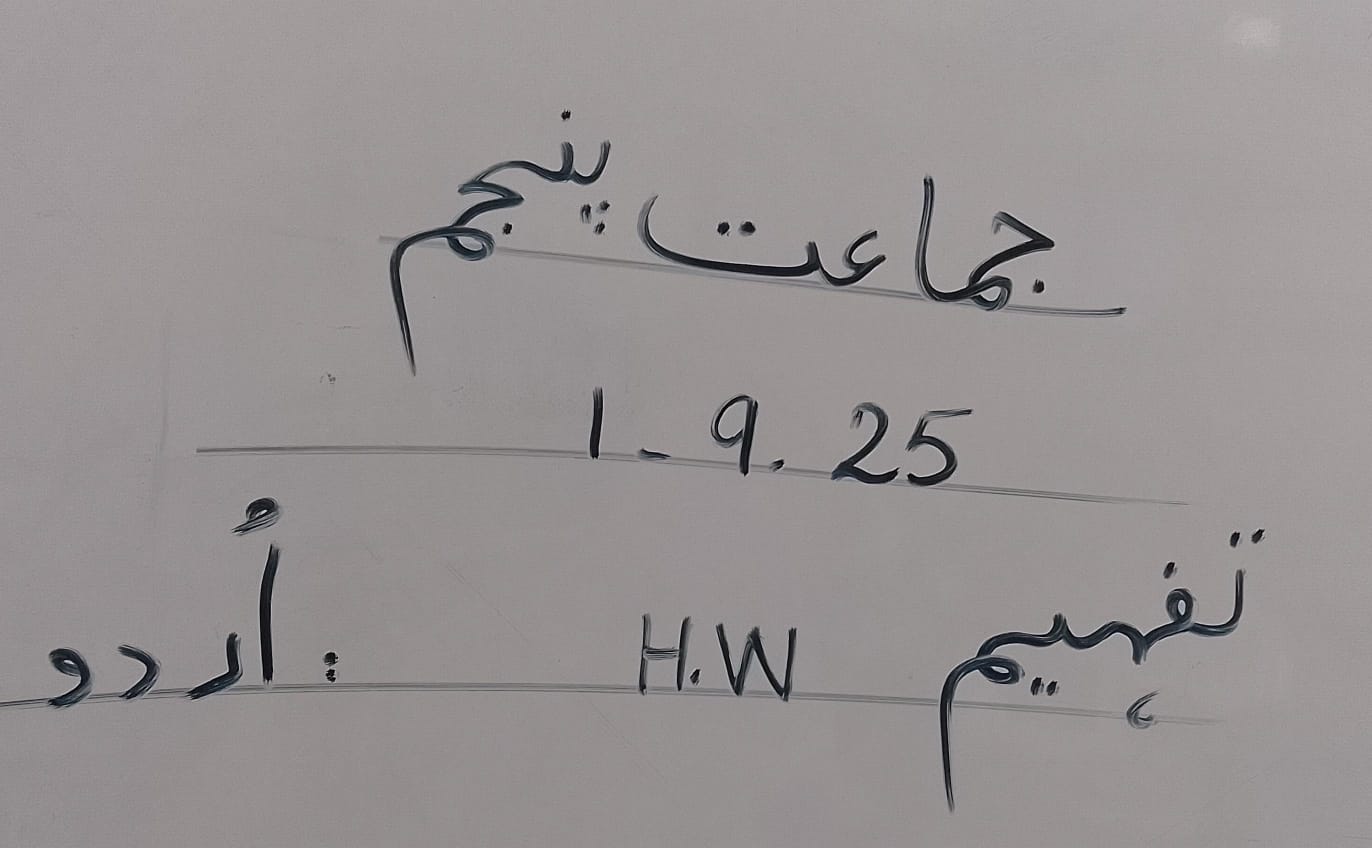 جماعت پنجم
1-9.25
تفہیم H.W :اُردو